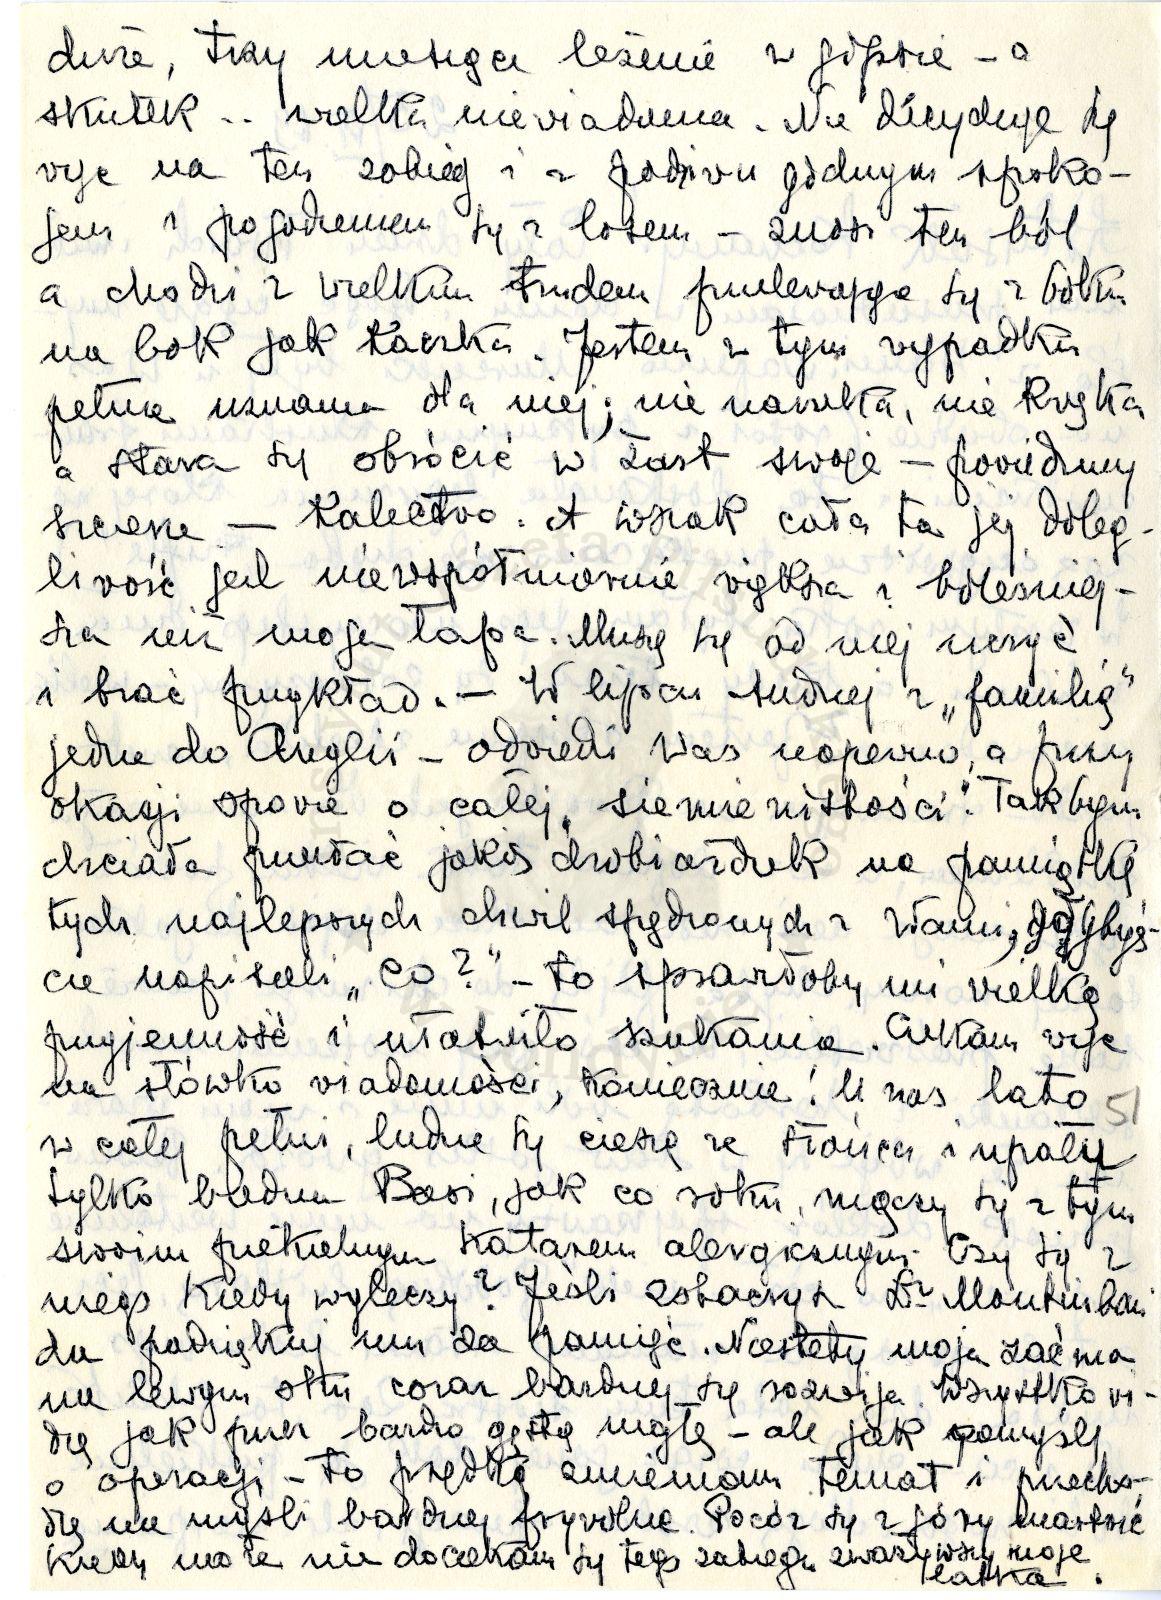 duże, trzy miesiące leżenie w gipsie – a
skutek .. wielka niewiadoma. Nie decyduje się
więc na ten zabieg i z podziwu godnym spoko-
jem i pogodzeniem się z losem – znosi ten ból
a chodzi z wielkim trudem przelewając się z boku
na bok jak kaczka. Jestem w tym wypadku
pełna uznania dla niej; nie narzeka, nie krzyka
a stara się obrócić w żart swoje – powiedzmy
szczerze – kalectwo. A wszak cała ta jej doleg-
liwość jest niewspółmiernie większa i boleśniej-
sza niż moja łapa. Muszę się od niej uczyć
i brać przykład. – W lipcu Andrzej z „familią”
jedzie do Anglii – odwiedzi Was napewno, a przy
okazji opowie o całej „siemieniskości”. Tak bym
chciała przesłać jakiś drobiażdżek na pamiątkę
tych najlepszych chwil spędzonych z Wami, gdybyś-
cie napisali „co?” – to sprawiłoby mi wielką
przyjemność i ułatwiło szukanie. Czekam więc
na słówko wiadomości, koniecznie! U nas lato
51
w całej pełni, ludzie się cieszą ze słońca i upału
tylko biedna Basi, jak co roku, męczy się z tym
swoim piekielnym katarem alergicznym. Czy się z
niego kiedy wyleczy? Jeśli zobaczysz Dr
da podziękuj mu za pamięć. Niestety moja zaćma
na lewym oku coraz bardziej się rozwija. Wszystko wi-
dzę jak przez bardzo gęstą mgłę – ale jak pomyślę
o operacji – to prędko zmieniam temat i przecho-
dzę na myśli bardziej frywolne. Pocóż się z góry martwić
kiedy może nie doczekam się tego zabiegu zważywszy moje
latka.